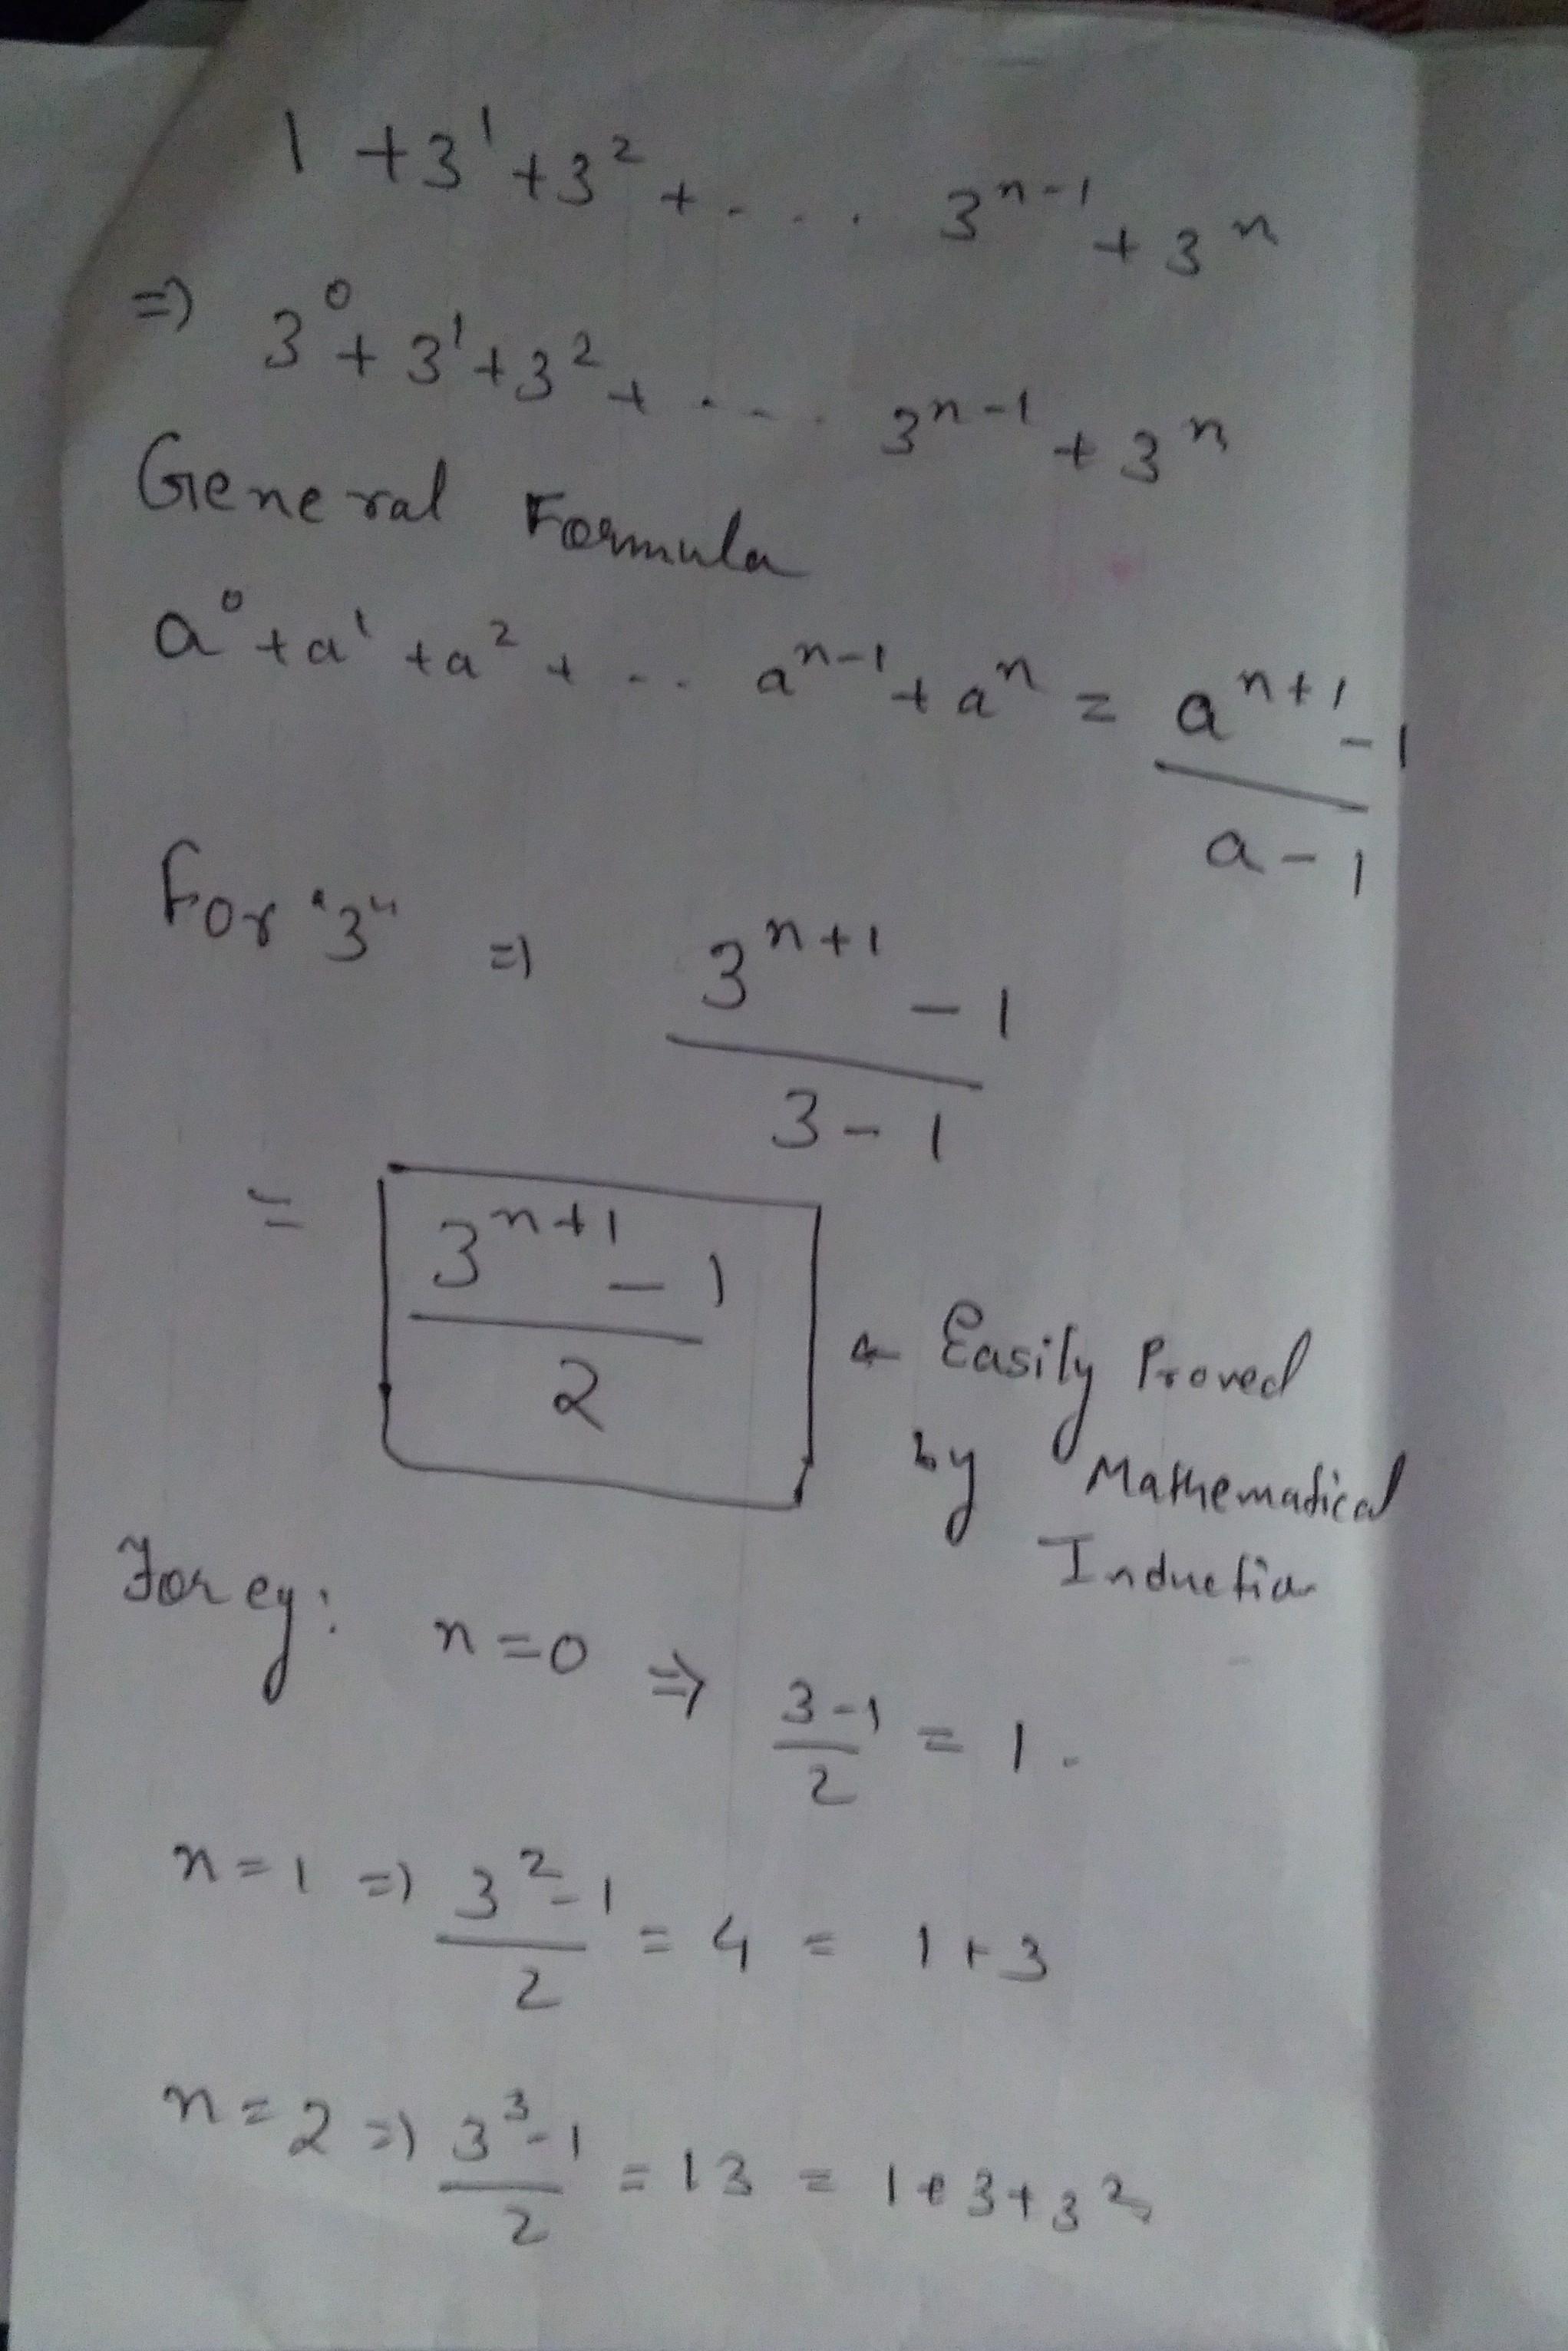 1 + 3¹ + 3² + . . . . 3ⁿ⁻¹ + 3ⁿ
=) 3⁰ + 3¹ + 3² + . . . . 3ⁿ⁻¹ + 3ⁿ
General Formula
a⁰ + a¹ + a² + . . . aⁿ⁻¹ + aⁿ = aⁿ⁺¹ - 1
a - 1
For "3" =) 3ⁿ⁺¹ - 1
3 - 1
= 3ⁿ⁺¹ - 1
2
← Easily Proved
by Mathematical
Induction
For eg: n=0 ⇒ 3-1
2
= 1.
n=1 =) 3²-1
2
= 4 = 1+3
n=2 =) 3³-1
2
= 13 = 1+3+3²